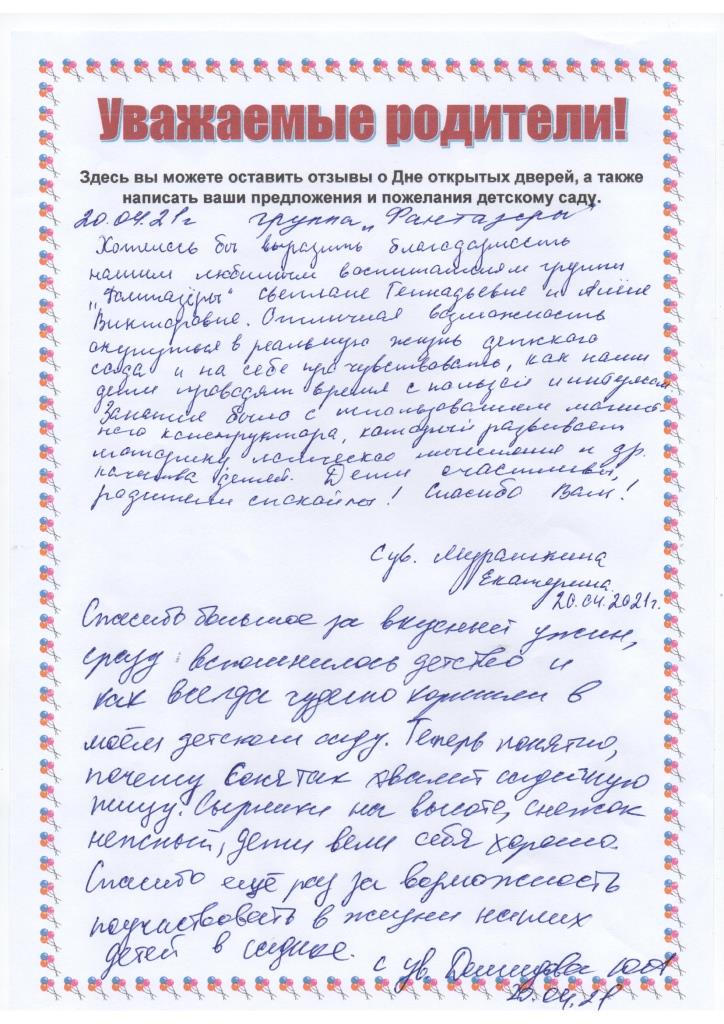 Уважаемые родители!
Здесь вы можете оставить отзывы о Дне открытых дверей, а также
написать ваши предложения и пожелания детскому саду.
20.04.21г группа „Фантазеры"
Хотелось бы выразить благодарность
нашим любимым воспитателям группы
„Фантазёры" Светлане Геннадьевне и Алёне
Викторовне. Отличная возможность
окунуться в реальную жизнь детского
сада и на себе прочувствовать, как наши
дети проводят время с пользой и интересом
Занятие было с использованием магнит-
ного конструктора, который развивает
моторику логическое мышление и др.
качества детей. Дети счастливы,
родители спокойны! Спасибо Вам!
С ув. Мурашкина
Екатерина
20.04.2021г.
Спасибо большое за вкусный ужин,
сразу вспомнилось детство и
как всегда чудесно кормили в
моём детском саду. Теперь понятно,
почему Соня так хвалит садичную
пищу. Сырники на высоте, снежок
нежный, дети вели себя хорошо.
Спасибо ещё раз за возможность
поучаствовать в жизни наших
детей в садике.
с ув. Демидова
20.04.21